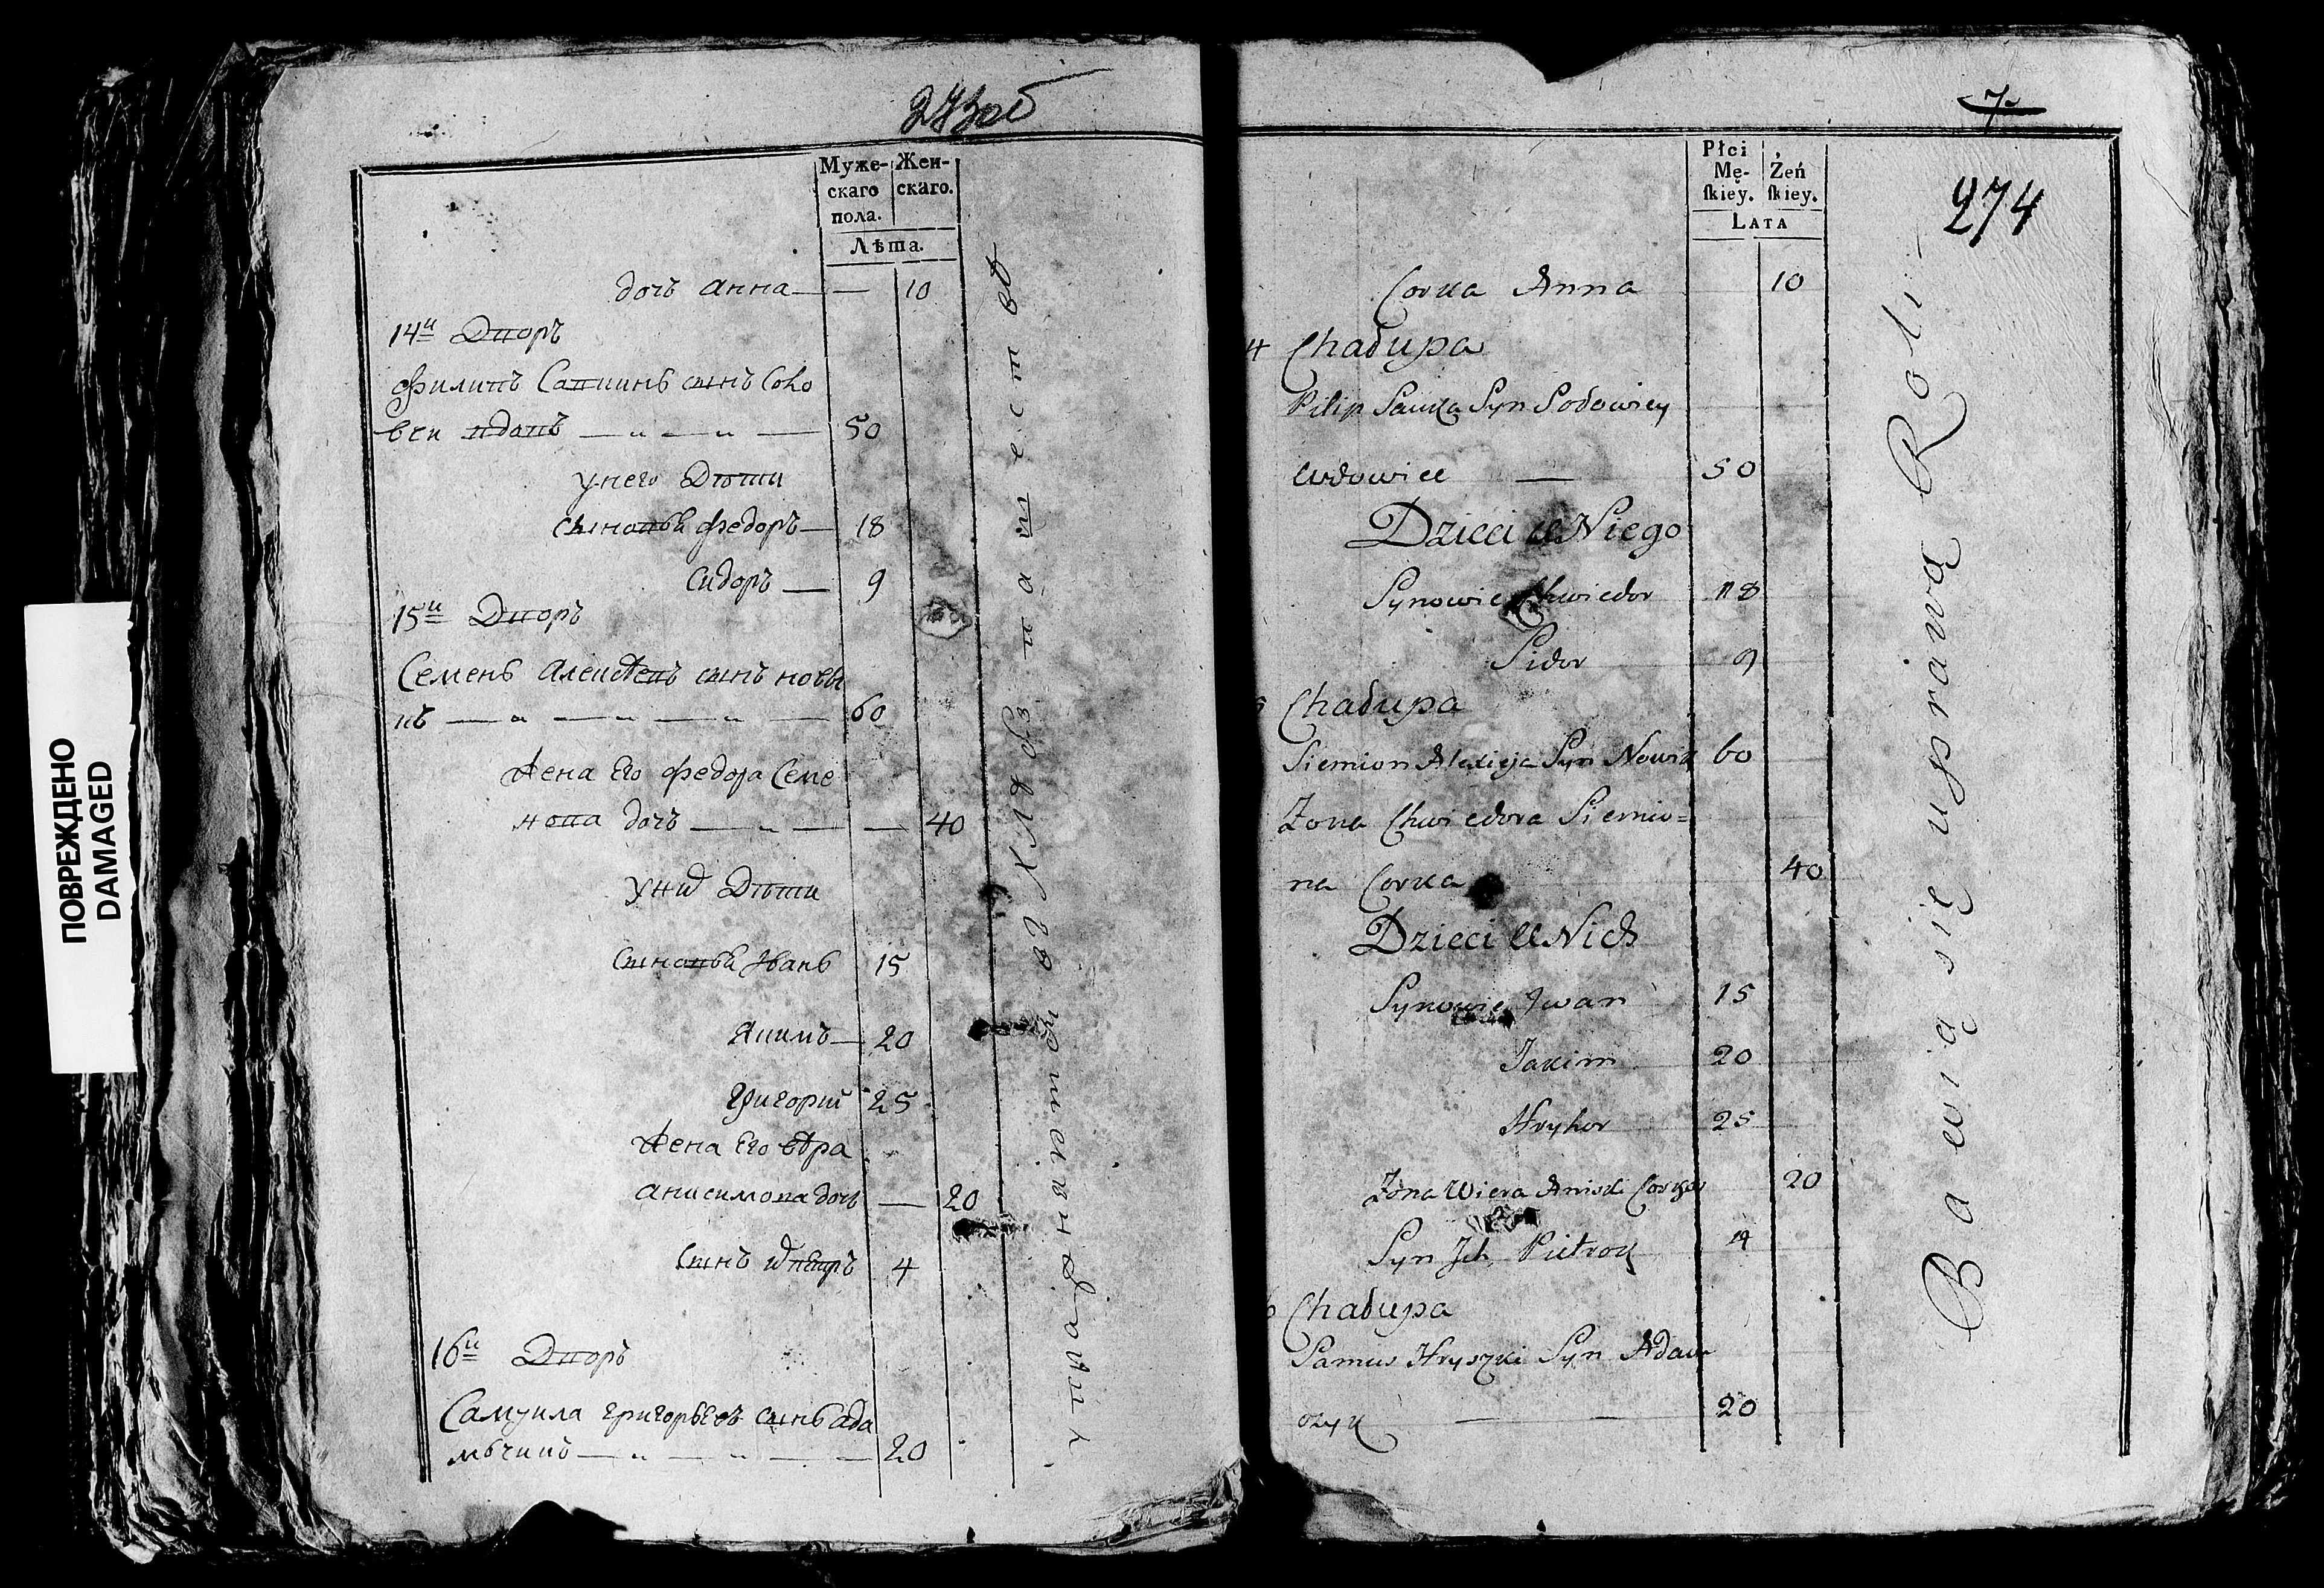 ПОВРЕЖДЕНО
DAMAGED
273об
Муже-
скаго
пола.
Жен-
скаго.
Лѣта.
дочь Анна — 10
14й Дворъ
Филипъ Савкинъ сынъ Соко
вдовъ — „ — „ — 50
у него Дѣти
сыновья Федоръ — 18
Сидоръ — 9
15й Дворъ
Семенъ Алексѣевъ сынъ Новы
къ — „ — „ — „ — 60
жена Его Федора Семе
нова дочь — „ — — 40
у них Дѣти
Сыновья Иванъ 15
Якимъ — 20
Григорий 25
жена Его вѣра
анисимова дочь — 20
Сынъ их петръ 4
16й Дворъ
Самуила григорьевъ сынъ ада
мъчикъ — „ — „ — — 20
7
274
Płci
Mę-
skiey.
Żeń
skiey.
LATA
Corka Anna 10
4 Chałupa
Pilip Sawka Syn
wdowiec — 50
Dzieci u Niego
Synowie Chwiedor 18
Sidor 9
5 Chałupa
Siemion Alexieja Syn Nowik 60
Zona Chwiedora Siemio=
na Corka 40
Dzieci u Nich
Synowie Jwan 15
Jakim 20
Hryhor 25
Zona Wiera Corka 20
Syn Jch Pietrok 4
6 Chałupa
Samus Hryszki Syn Adam
czyk — — 20
Bawią się uprawą Roli